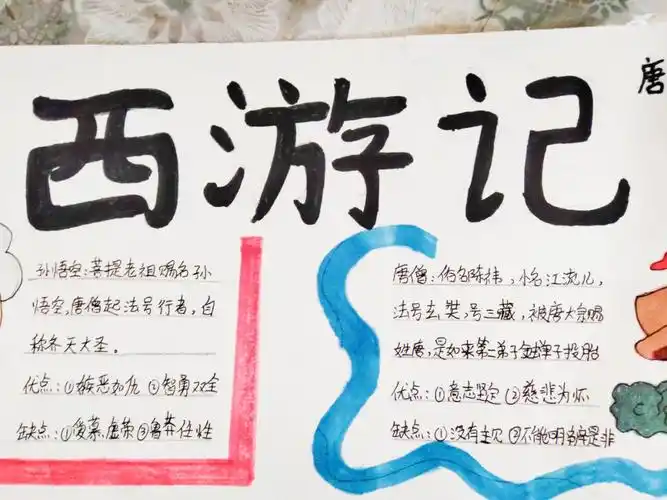 西游记
唐
孙悟空:菩提老祖赐名孙
悟空,唐僧起法号行者,自
称齐天大圣。
优点:①嫉恶如仇 ②智勇双全
缺点:①爱慕虚荣 ②鲁莽任性
唐僧:俗名陈祎,小名江流儿,
法号玄奘,号三藏,被唐太宗赐
姓唐,是如来第二弟子金蝉子投胎
优点:①意志坚定 ②慈悲为怀
缺点:①没有主见 ②不能明辨是非